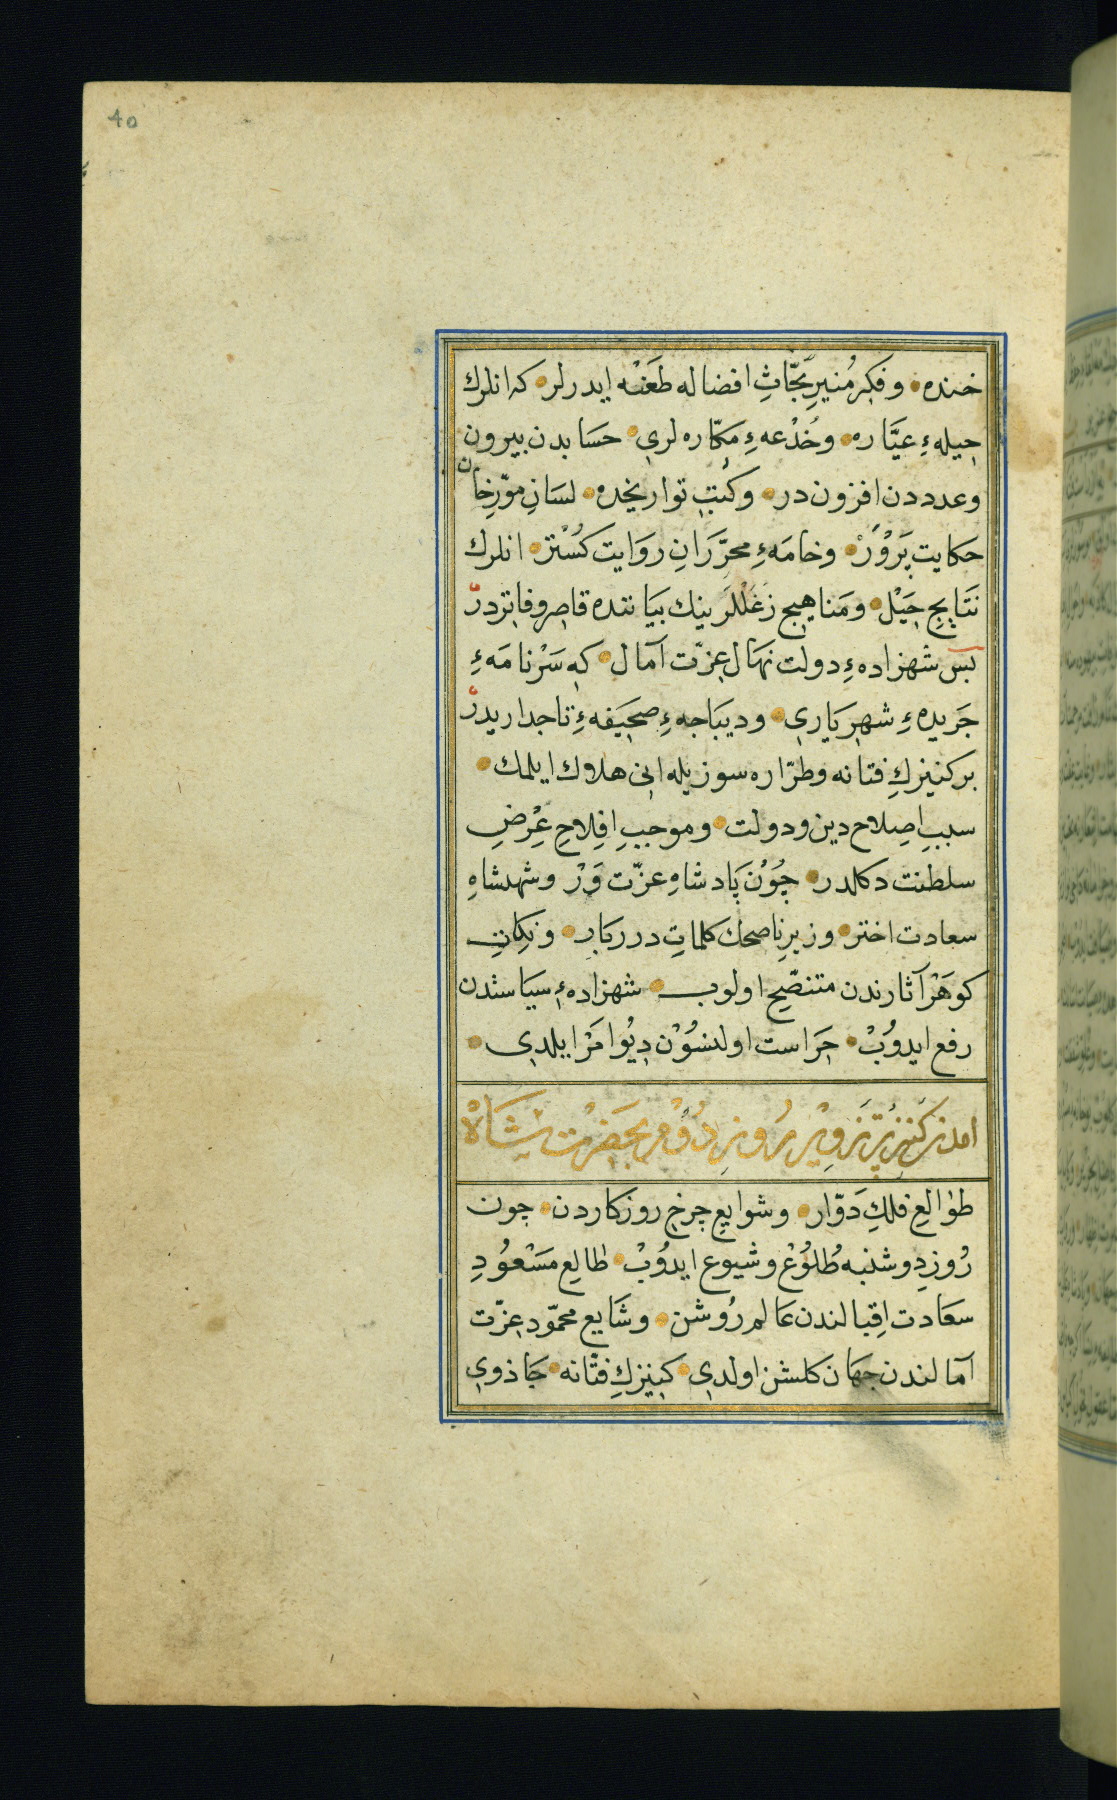 40
خنده وفكر مُنيرِ بَحّاثِ افضاله طَعَنْه ايدرلر كه انلرك
حِيلهءِ عيَّاره وخُدْعهءِ مَكّاره لرى حسَابدن بيرون
وعدددن افزون در وكُتبِ تواريخده لسَانِ مؤرِّخان
حكايت پَرْوَرْ وخامَهءِ محرِّرَانِ روَايت كُسْتر انلرك
نَتَايجِ حِيَلْ ومَناهيجِ زغَللَرينك بَيَاننده قاصِر وفاتر در
پس شهزادهءِ دولت نهَال عزّت آمال كه سَرْنامَهءِ
جَريدهءِ شهرِيَارى وديبَاجهءِ صحيَفهءِ تاجداريدر
بر كنيزكِ فتانه وطرّاره سوزيله انى هلاك ايلمك
سببِ اصِلاح دين ودولت وموجبِ افِلاحِ عِرْضِ
سلطنت دكلدر چُوْن پَادشاهِ عزّت وَرْ وشهنشاهِ
سعادت اختر وزيرِ ناصحك كلماتِ درربَار ونكِاتِ
كوهَرْ آثارندن متنصّح اولوب شهزادهءِ سيَاستدن
رفع ايدوُبْ حِرَاست اولنسُوْن دِيُو امَرْ ايلدى
امدن كَنيزكِ پُرتَزوِيْر رُوزِ دُوُم بحَضرْت شَاهْ
طوالعِ فلكِ دَوّار وشوايعِ چرخِ روزكاردن چون
رُوزِ دِوشنبه طُلوُعْ وشيوع ايدوُبْ طالعِ مَسْعُوْدِ
سعَادت اقِبالندن عالم رُوشن وشَايع محمّود عِزّت
آمالندن جهَان كلشن اولدى كنيزكِ فتّانه جَاذوى